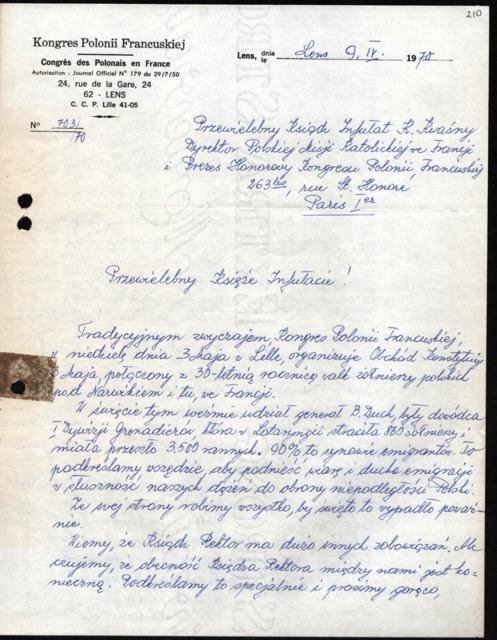 210
Kongres Polonii Francuskiej
Congrès des Polonais en France
Autorisation : Journal Officiel N° 179 du 29/7/50
24, rue de la Gare, 24
62 - LENS
C. C. P. Lille 41-05
Lens, dnia le Lens 9. IV. 1970
N° 703/70
Przewielebny Ksiądz Infułat K. Kwaśny
Dyrektor Polskiej Misji Katolickiej we Francji
i Prezes Honorowy Kongresu Polonii Francuskiej
263 bis, rue St. Honore
Paris 1er
Przewielebny Księże Infułacie !
Tradycyjnym zwyczajem, Kongres Polonii Francuskiej,
W niedzielę dnia 3 Maja w Lille, organizuje Obchód Konstytucji
3 Maja, połączony z 30-letnią rocznicą walk żołnierzy polskich
pod Narwikiem i tu, we Francji.
W święcie tym weźmie udział generał B. Duch, były dowódca
I Dywizji Grenadierów która w Lotaryngii straciła 860 żołnierzy i
miała przeszło 3,500 rannych. 90% to synowie emigrantów. To
podkreślamy wszędzie, aby podnieść wiarę i ducha emigracji
w słuszność naszych dążeń do obrony niepodległości Polski.
Ze swej strony robimy wszystko, by święto to wypadło poważ-
nie.
Wiemy, że Ksiądz Rektor ma dużo innych zobowiązań, Ale
czujemy, że obecność Księdza Rektora między nami jest ko-
nieczną. Podkreślamy to specjalnie i prosimy gorąco,